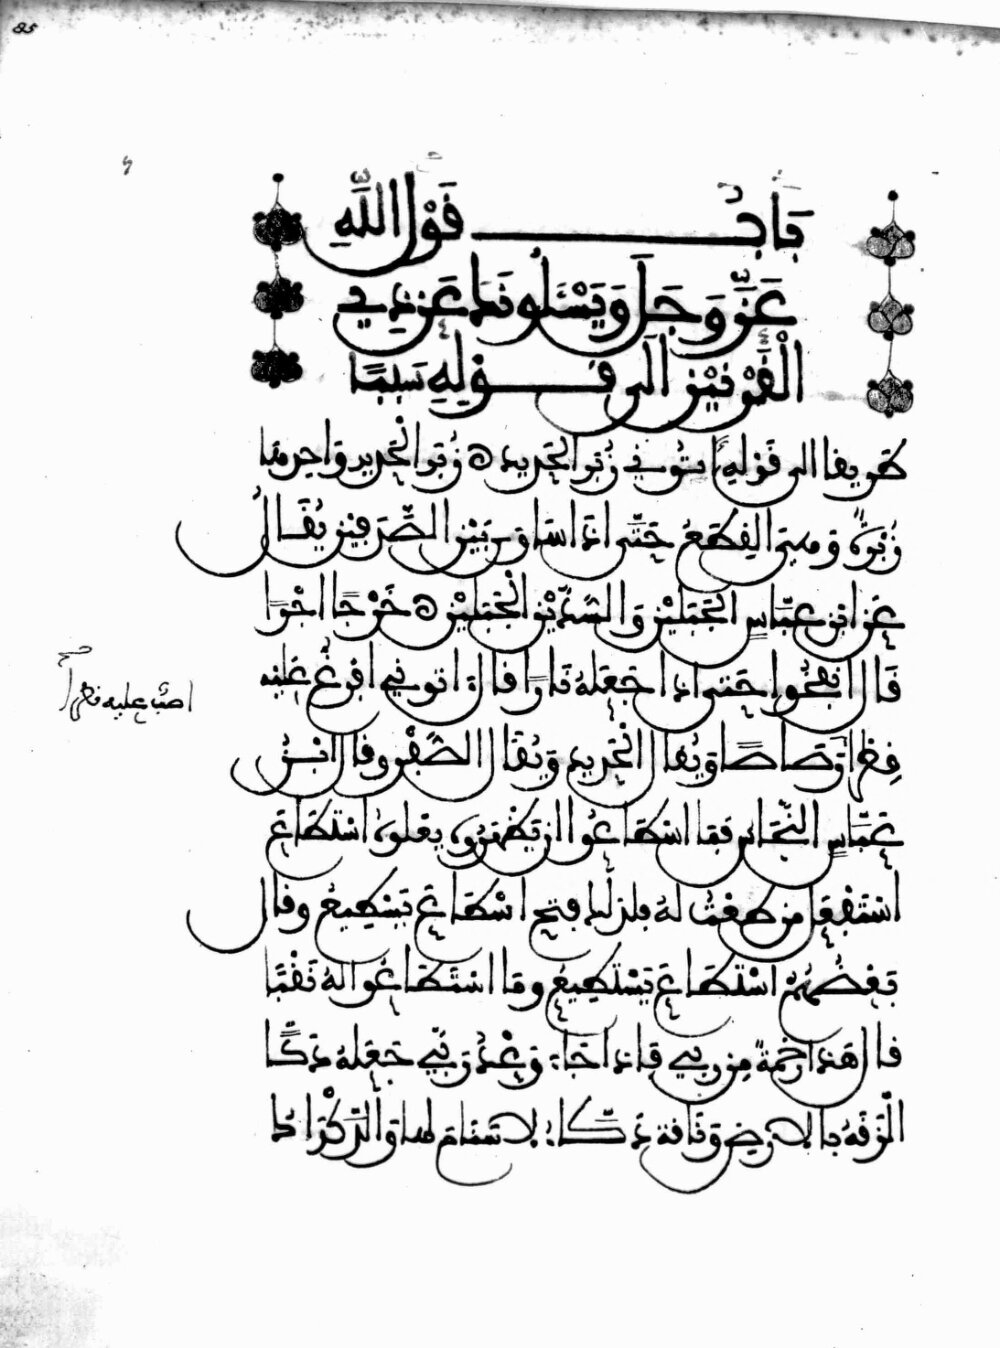 85
باب قول الله
عز وجل ويسئلونك عن ذي
القرنين الى قوله سببا
طريقا الى قوله ءاتوني زبر الحديد ه زبر الحديد واحدها
زبرة وهي القطع حتى اذا ساوى بين الصدفين يقال
عن ابن عباس الجبلين والسدين الجبلين ه خرجا اجرا
قال انفخوا حتى اذا جعله نارا قال اتوني افرغ عليه
اصب عليه قطرا
صح
قطرا رصاصا ويقال الحديد ويقال الصفر وقال ابن
عباس النحاس فما اسطاعوا ان يظهروه يعلوه استطاع
استفعل من طعت له فلذلك فتح اسطاع يسطيع وقال
بعضهم استطاع يستطيع وما استطاعوا له نقبا
قال هذا رحمة من ربي فاذا جاء وعد ربي جعله دكا
الزقه بالارض وناقة دكاء لا سنام لها والدكداك